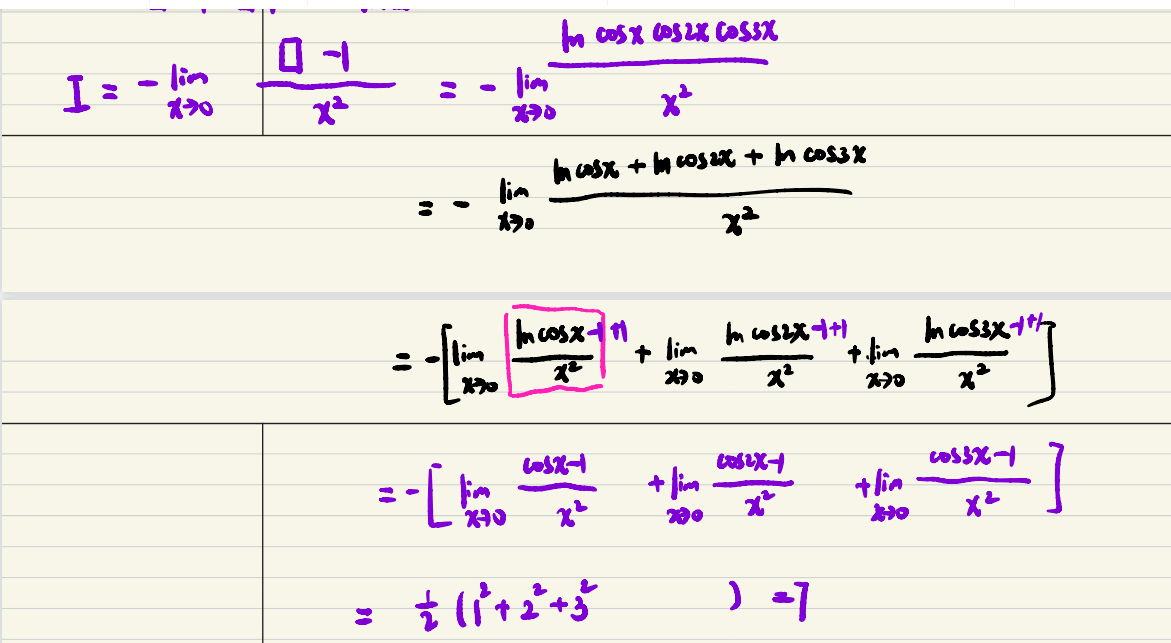 I = - lim x→0 (□ - 1)/x² = - lim x→0 (ln cosx cos2x cos3x)/x²
= - lim x→0 (ln cosx + ln cos2x + ln cos3x)/x²
= -[ lim x→0 (ln cosx -1+1)/x² + lim x→0 (ln cos2x -1+1)/x² + lim x→0 (ln cos3x -1+1)/x² ]
= -[ lim x→0 (cosx-1)/x² + lim x→0 (cos2x-1)/x² + lim x→0 (cos3x-1)/x² ]
= 1/2 (1² + 2² + 3² ) = 7